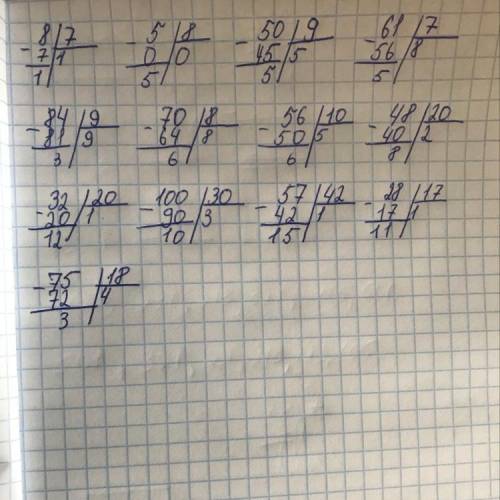 8 7 5 8 50 9 61 7
- 7 1 - 0 0 - 45 5 - 56 8
1 5 5 5
84 9 70 8 56 10 48 20
- 81 9 - 64 8 - 50 5 - 40 2
3 6 6 8
32 20 100 30 57 42 28 17
- 20 1 - 90 3 - 42 1 - 17 1
12 10 15 11
75 18
- 72 4
3